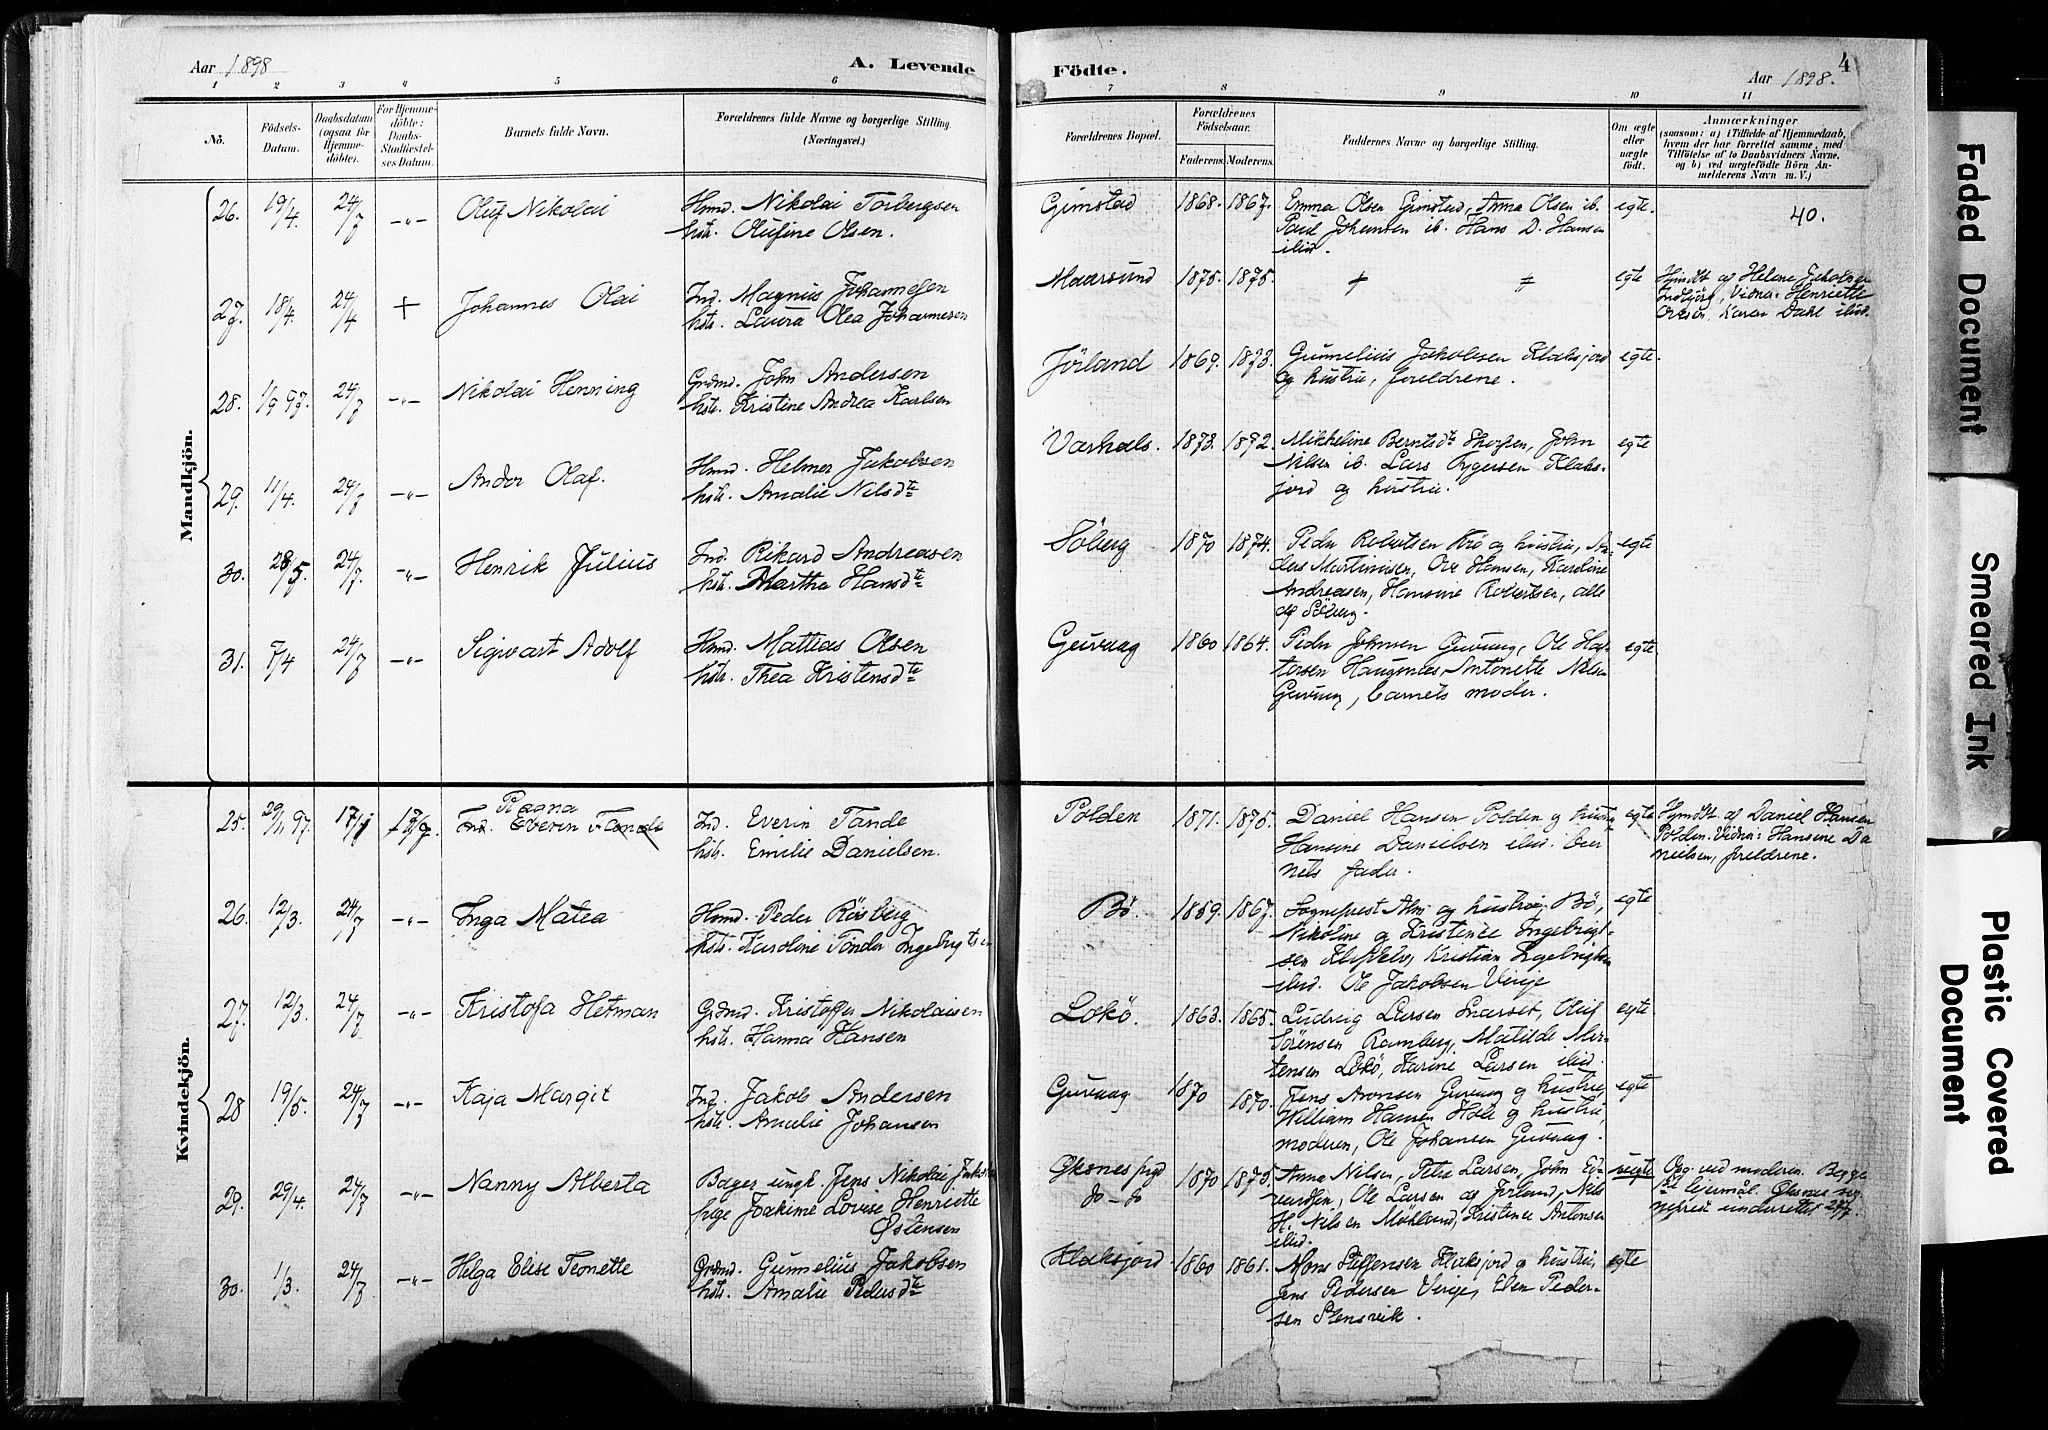 Aar 1898
A. Levende
Födte.
Aar 1898.
4
1 2 3 4 5 6 7 8 9 10 11
No.
Födsels-
Datum.
Daabsdatum
(ogsaa for
Hjemme-
döbte).
For Hjemme-
döbte:
Daabs-
Stadfæstel-
ses Datum.
Barnets fulde Navn.
Forældrenes fulde Navne og borgerlige Stilling.
(Næringsvei.)
Forældrenes Bopæl.
Forældrenes
Födselsaar.
Faderens. Moderens.
Faddernes Navne og borgerlige Stilling.
Om ægte
eller
uægte
födt.
Anmærkninger
(saasom: a) i Tilfælde af Hjemmedaab,
hvem der har forrettet samme, med
Tilföielse af to Daabsvidners Navne,
og b) ved uægtefödte Börn An-
melderens Navn m. V.)
Mandkjön.
26. 19/4. 24/7 -"- Oluf Nikolai
Hmd. Nikolai Torbergsen
hstr. Olufine Olsen.
Grimstad 1868. 1867.
Emma Olsen Grimstad, Anna Olsen ib.
Paul Johansen ib. Hans D. Hansen
ibid.
egte.
40.
27. 18/4. 24/4 + Johannes Olai
Ind. Magnus Johannesen
hstr. Laura Olea Johannesen
Maarsund 1875. 1875. + +
egte
Hjmdt af Helene Jakobsen
Vidner: Henriette
Karen Dahl ibid.
28. 1/9 97. 24/7 -"- Nikolai Henning
Grdmd. John Andersen
hstr. Kristine Andrea Karlsen
Jörland 1869. 1873.
Gunnelius Jakobsen Klaksjord
og hustru, foreldrene.
egte.
29. 11/4. 24/7 -"- Andor Olaf.
Hmd. Helmer Jakobsen
hstr. Amalie Nilsdtr
Varhals. 1873. 1872.
Mikkeline Berntsdtr John
Nilsen ib. Lars Klaks-
jord og hustru.
egte
30. 28/5. 24/7. -"- Henrik Julius
Ind. Rikard Andreasen
hstr. Martha Hansdtr
Söberg 1870 1874.
Peder Robertsen og hustru, An-
ders Martinusen, Ole Hansen, Karoline
Andreasen, Hansine Robertsen, alle
af Söberg.
egte
31. 7/4 24/7 -"- Sigvart Adolf
Hmd. Mattias Olsen
hstr. Thea Kristensdtr
Guvaag 1860 1864.
Peder Johnsen Guvaag, Ole
Haugsnes Antonette Nilsen
Guvaag, barnets moder.
egte
Kvindekjön.
25. 29/11 97. 17/7 17/7. Ragna
Everin Tande
Ind. Everin Tande
hstr. Emilie Danielsen.
Polden 1871. 1875.
Daniel Hansen Polden og hustru
Hansine Danielsen ibid. bar-
nets fader.
egte
Hjmdt af Daniel Hansen
Polden. Vidner: Hansine Da
nielsen, foreldrene.
26. 12/3. 24/7 -"- Inga Matea
Hmd. Peder Rörsberg
hstr. Karoline Tander Ingebrigtsen
Bö. 1859. 1867.
Sogneprest Alm og hustru Bö,
Nikoline og Kristence Ingebrigt-
sen Kristian Ingebrigtsen
ibid. Ole Jakobsen Verije
egte
27. 12/3. 24/7 -"- Kristofa Hetman
Grdmd. Kristoffer Nikolaisen
hstr. Hanna Hansen
Lokö. 1863. 1865.
Ludvig Larsen Snarset, Oluf
Sörensen Ramberg, Matilde Mor-
tensen Lokö, Karine Larsen ibid.
egte
28 19/5. 24/7 -"- Kaja Margit
Ind. Jakob Andersen
hstr. Amalie Johansen
Guvaag 1870 1870.
Jens Aronsen Guvaag og hustru,
William Hansen Hole og hustru,
moderen, Ole Johansen Guvaag.
egte
29. 29/4. 24/7 -"- Nanny Alberta
Bager ungk. Jens Nikolai
pige Joakime Lovise Henriette
Östensen
Öksnes prgd 1870 1873.
do - do
Anna Nilsen, Petra Larsen, John Ed-
vardsen, Ole Larsen af Jörland, Nils
H. Nilsen Möhland, Kristence Antonsen
ibid.
uegte
Opg. ved moderen. Begge
1ste leiermål. Öksnes sog-
neprest underrettet 24/7.
30. 1/3. 24/7 -"- Helga Elise Teonette
Grdmd. Gunnelius Jakobsen
hstr. Amalie Pedersdtr
Klaksjord 1860 1861.
Mons Steffensen Klaksjord og hustru,
Jens Pedersen Verije, Eben Peder-
sen Stensvik.
egte
Faded Document
Smeared Ink
Plastic Covered
Document